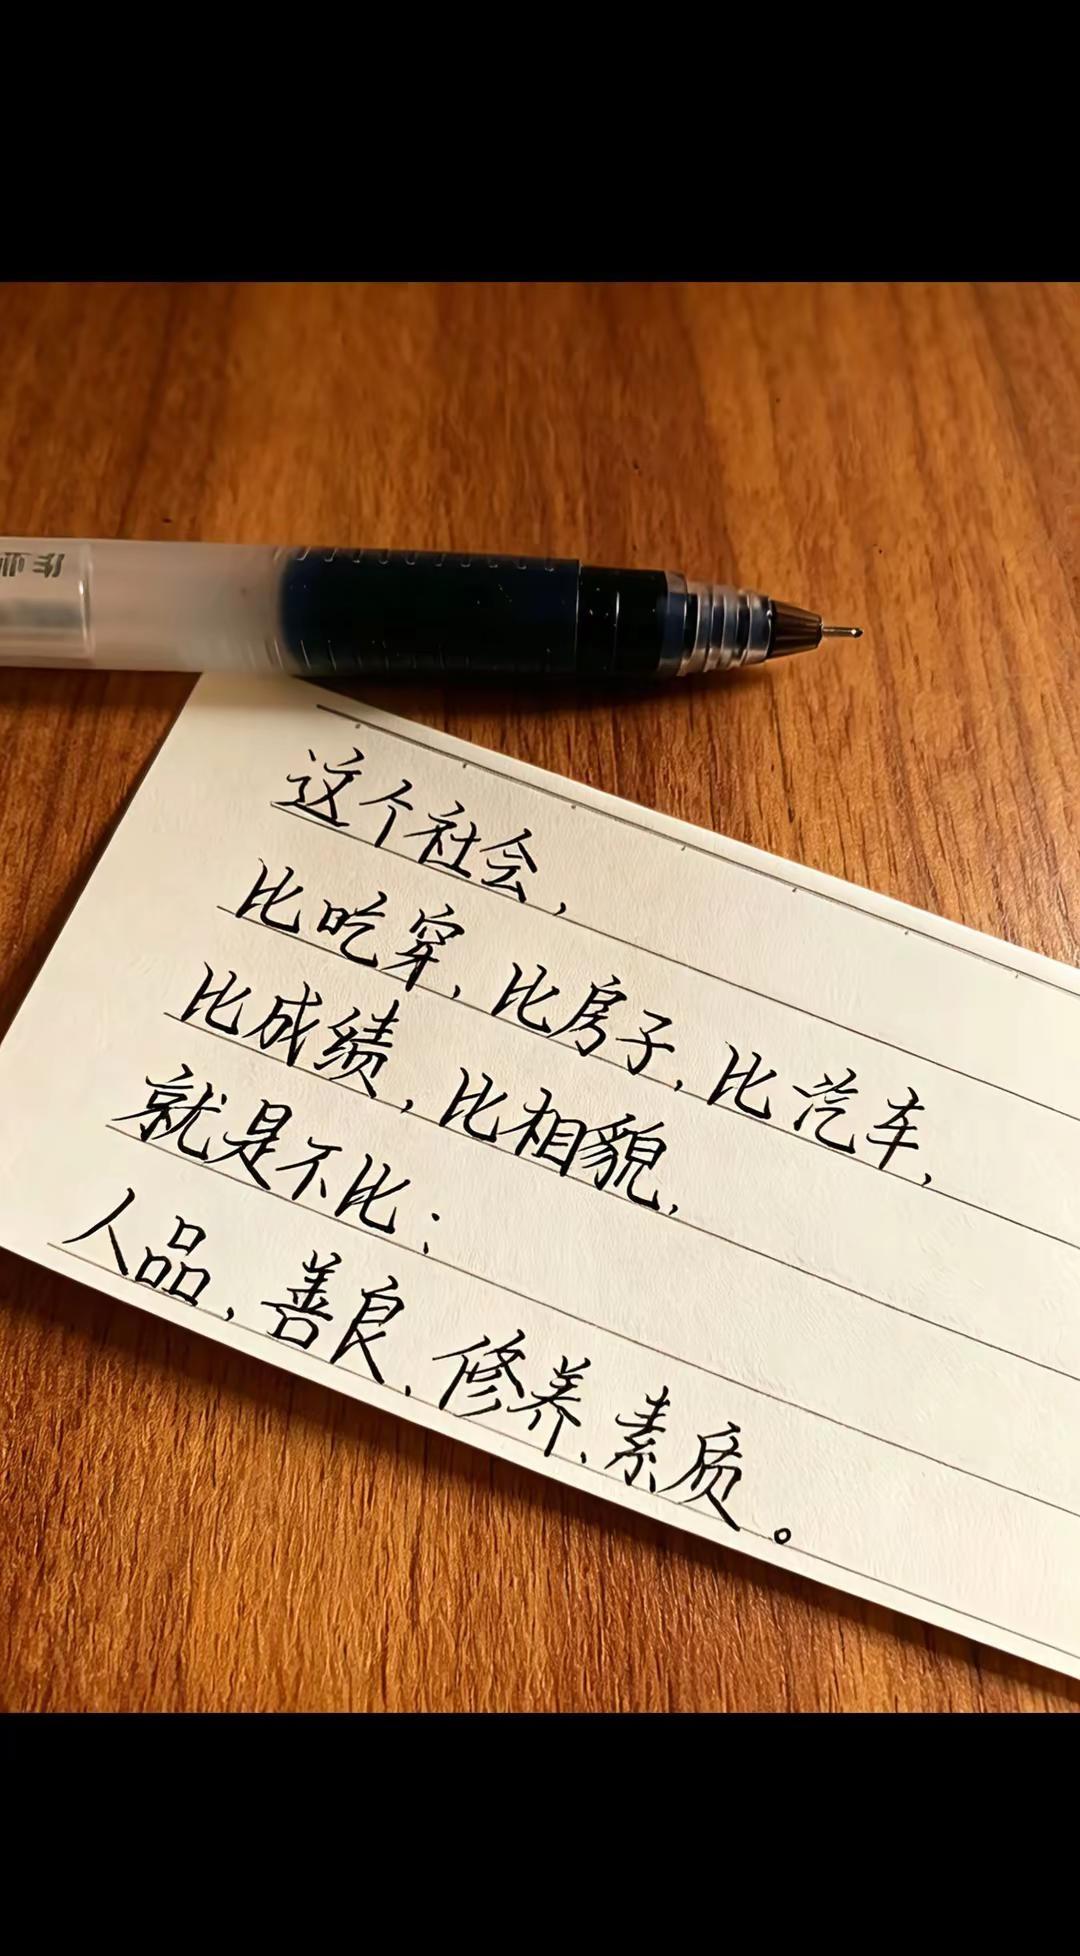 这个社会,
比吃穿,比房子,比汽车,
比成绩,比相貌,
就是不比:
人品,善良,修养,素质。